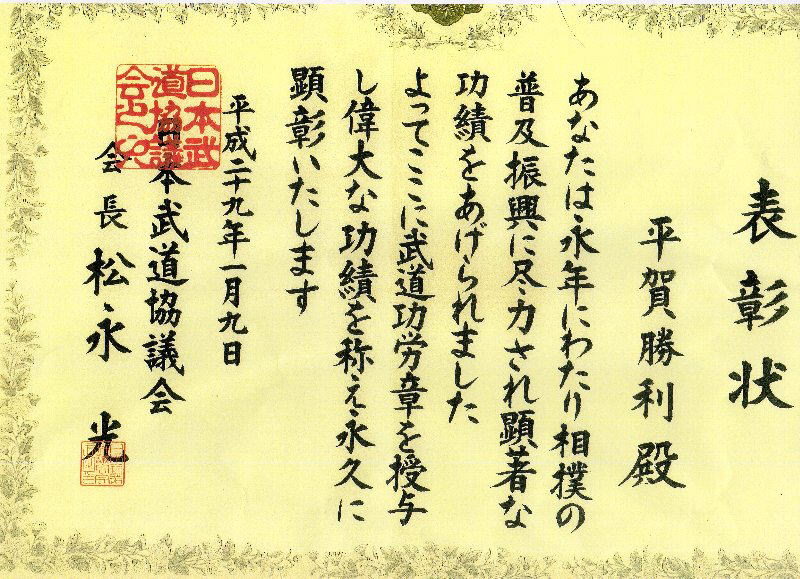 表彰状
平賀勝利殿
あなたは永年にわたり相撲の
普及振興に尽力され顕著な
功績をあげられました
よってここに武道功労章を授与
し偉大な功績を称え永久に
顕彰いたします
平成二十九年一月九日
日本武道協議会
会長 松永 光
日本武
道協議
会